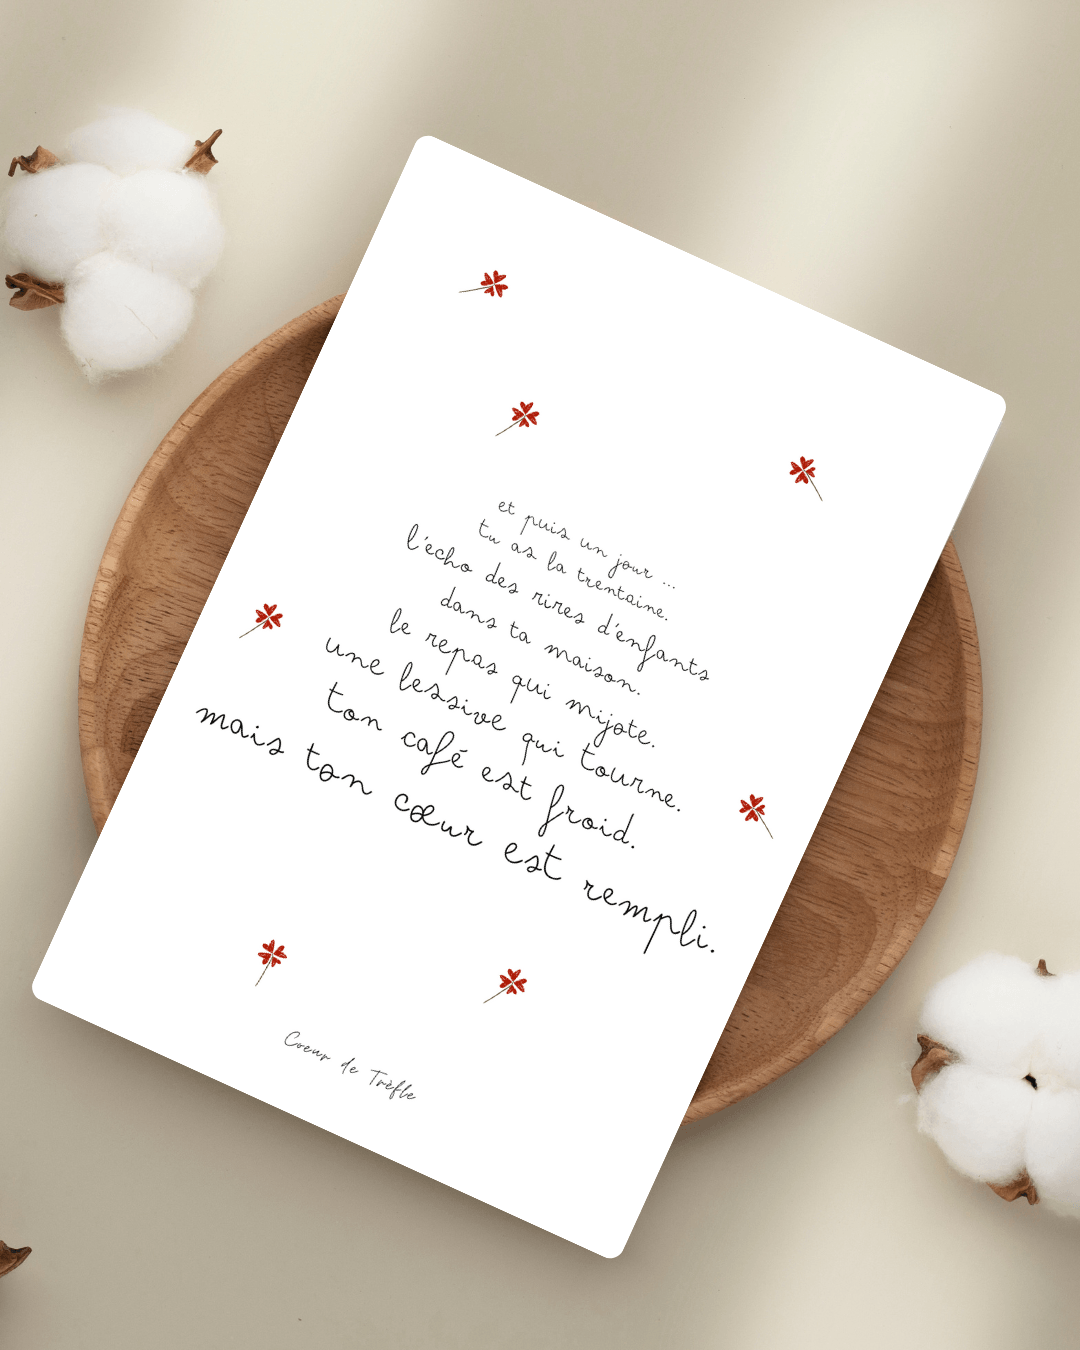 et puis un jour ...
tu as la trentaine.
l'écho des rires d'enfants
dans ta maison.
le repas qui mijote.
une lessive qui tourne.
ton café est froid.
mais ton cœur est rempli.
Coeur de Trèfle